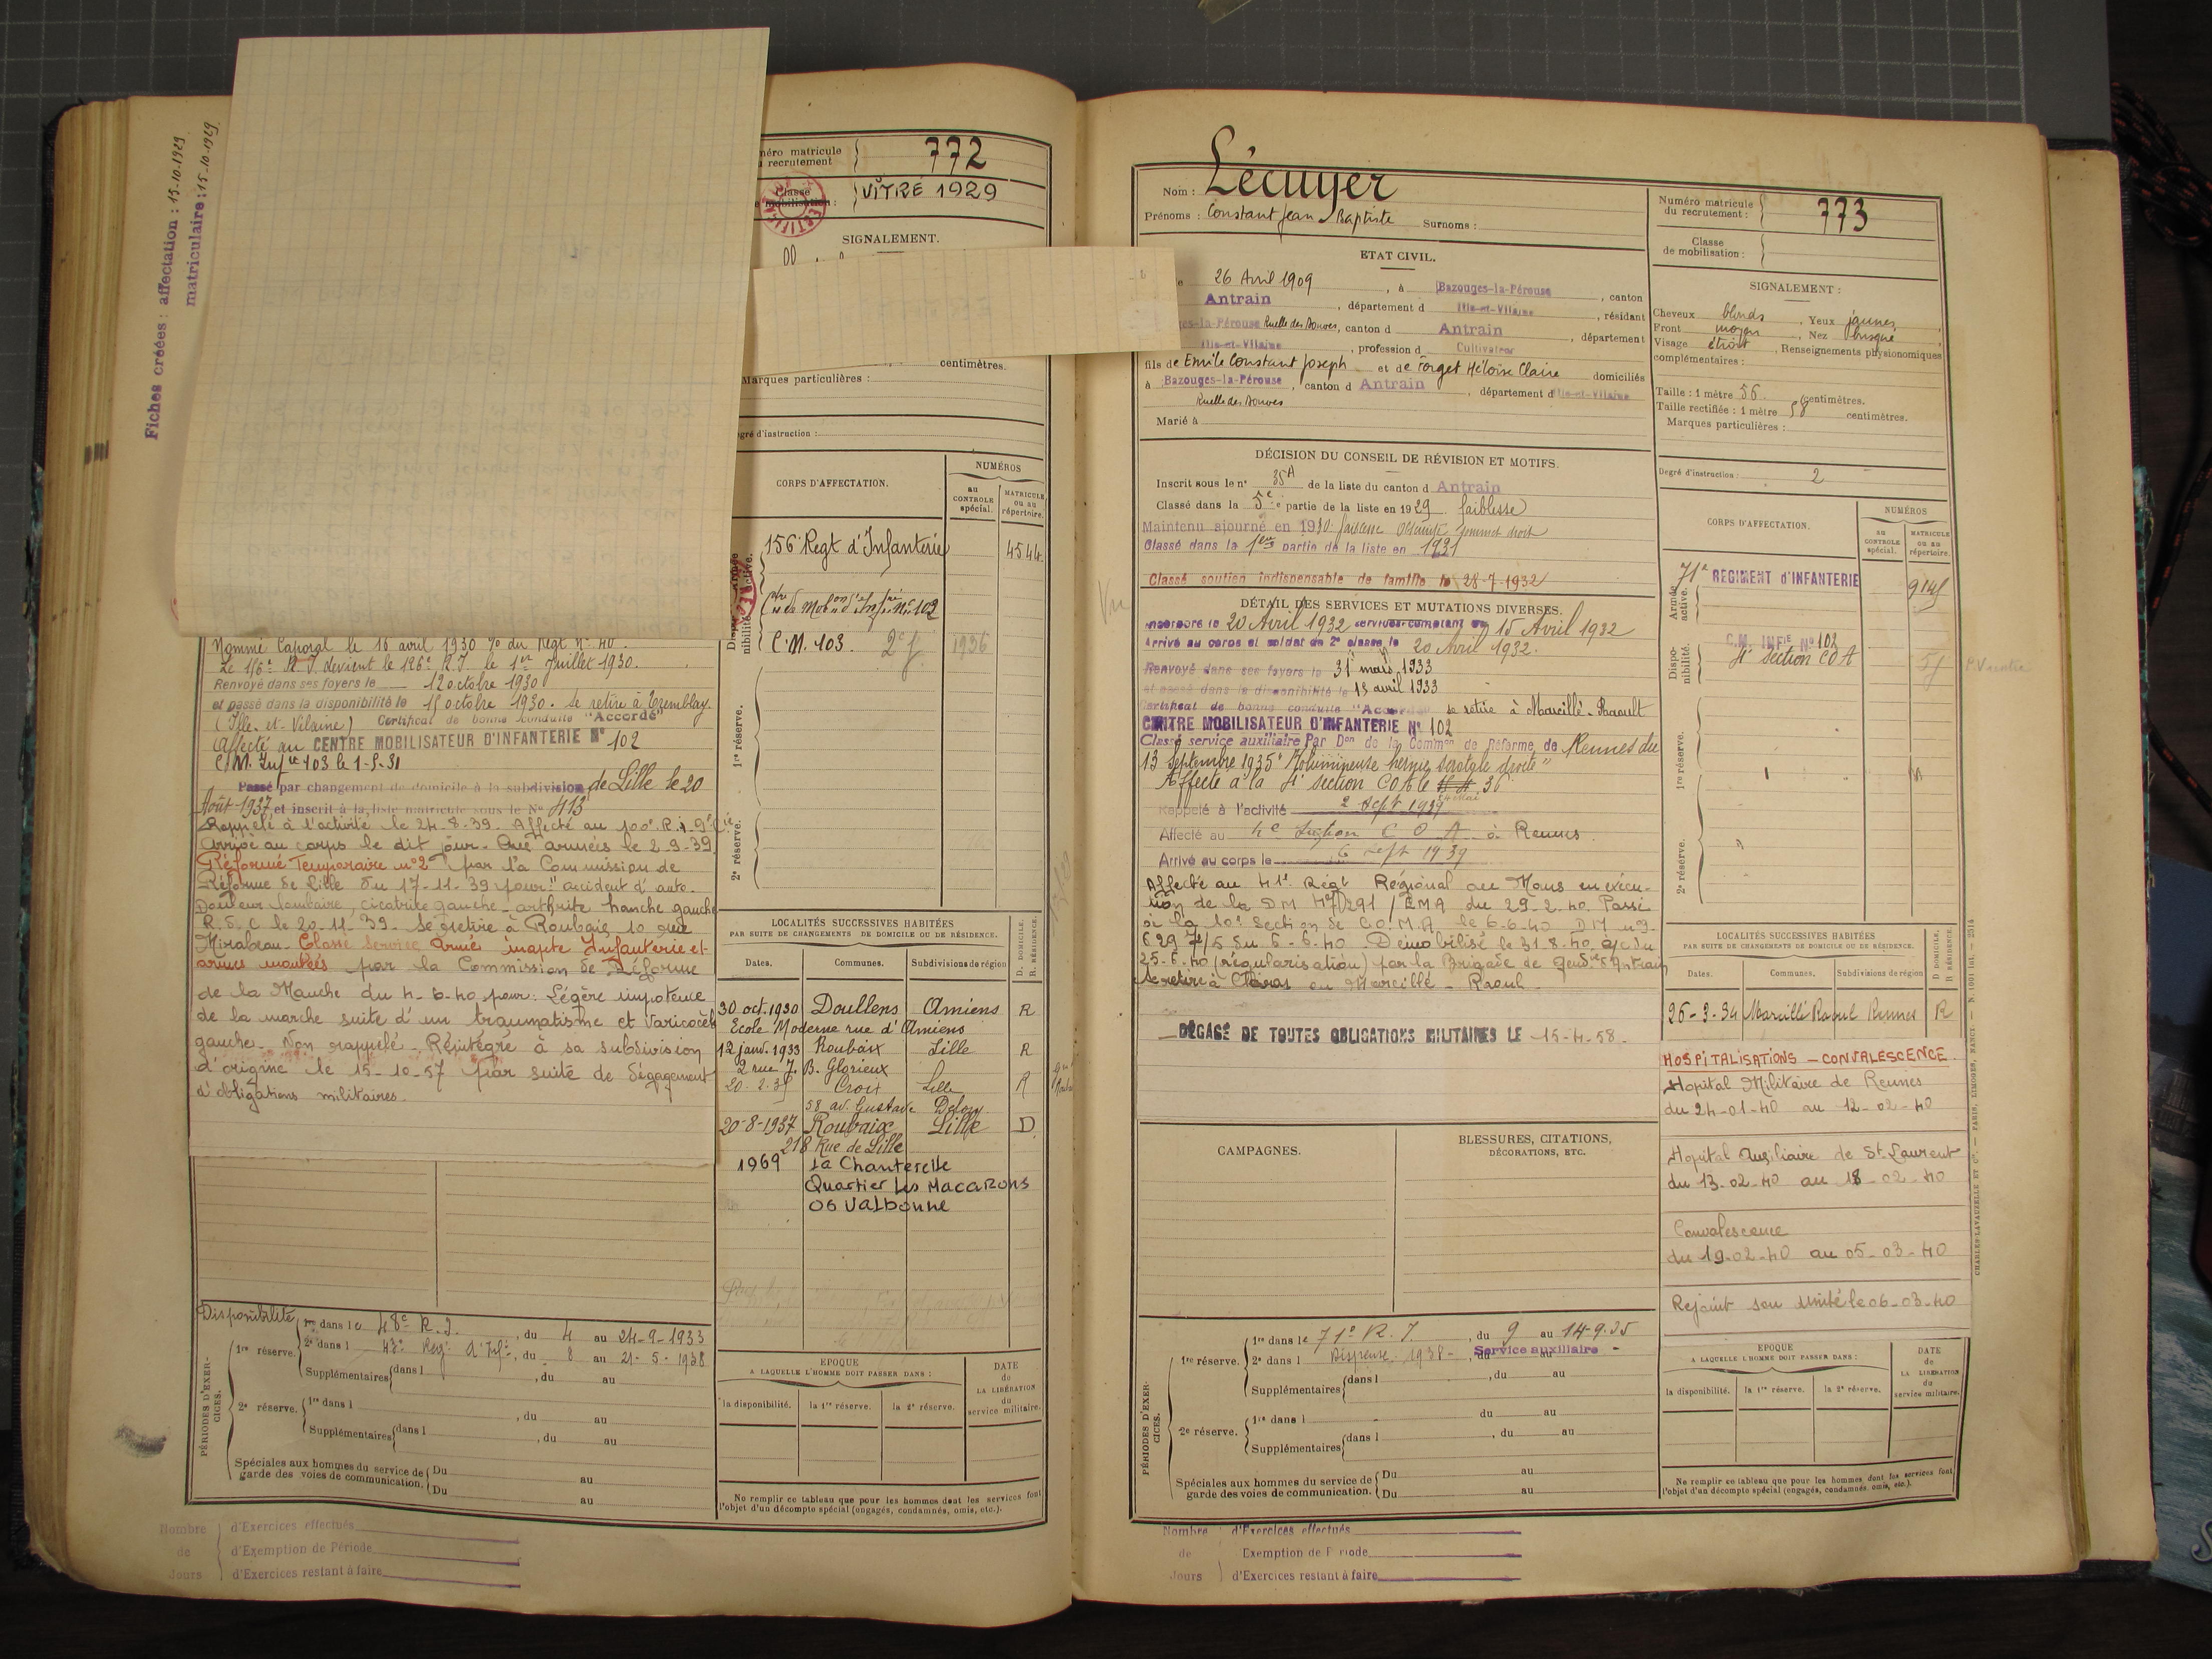 Fiches créées : affectation : 15-10-1929
matriculaire : 15-10-1929
Numéro matricule
du recrutement
772
Classe
de mobilisation :
VITRÉ 1929
SIGNALEMENT.
centimètres.
Marques particulières :
Degré d'instruction :
CORPS D'AFFECTATION.
NUMÉROS
au
CONTROLE
spécial.
MATRICULE
ou au
répertoire.
156e Regt d'Infanterie 4544
C.M. 103 1936
Nommé Caporal le 16 avril 1930 % du Regt N° 40.
Le 156e R.I. devient le 126e R.I. le 1er Juillet 1930.
Renvoyé dans ses foyers le 12 octobre 1930
et passé dans la disponibilité le 15 octobre 1930. Se retire à Tremblay
(Ille-et-Vilaine) Certificat de bonne conduite "Accordé"
Affecté au CENTRE MOBILISATEUR D'INFANTERIE N° 102
C.M. Infie 103 le 1-5-31
Passé par changement de domicile à la subdivision de Lille le 20
Août 1937 et inscrit à la liste matricule sous le N° 413
Rappelé à l'activité le 24-8-39. Affecté au 100e R.I. 9e Cie
Arrivé au corps le dit jour. Aux armées le 2-9-39
Réformé Temporaire n°2 par la Commission de
Réforme de Lille du 17-11-39 pour : "accident d'auto.
Douleur lombaire, cicatrice gauche - arthrite hanche gauche
R.D.C. le 20-11-39. Se retire à Roubaix 10 rue
Mirabeau. Classé Service Armé inapte Infanterie et
armes montées par la Commission de Réforme
de la Manche du 4-6-40 pour : Légère impotence
de la marche suite d'un traumatisme et Varicocèle
gauche. Non rappelé. Réintégré à sa subdivision
d'origine le 15-10-57 par suite de dégagement
d'obligations militaires.
Disponibilité.
1re réserve.
2e réserve.
LOCALITÉS SUCCESSIVES HABITÉES
PAR SUITE DE CHANGEMENTS DE DOMICILE OU DE RÉSIDENCE.
D. DOMICILE.
R. RÉSIDENCE.
Dates. Communes. Subdivisions de région
30 oct. 1930 Doullens Amiens R
Ecole Moderne rue d'Amiens
12 janv. 1933 Roubaix Lille R
2 rue J. B. Glorieux
20-2-35 Croix Lille R
58 av. Gustave Delory
20-8-1937 Roubaix Lille D
218 Rue de Lille
1969 La Chanterelle
Quartier Les Macarons
06 Valbonne
PÉRIODES D'EXERCICES.
Disponibilité 1re dans le 48e R.I., du 4 au 24-9-1933
1re réserve. 2e dans l 43e Reg. d'Inf., du 8 au 21-5-1938
Supplémentaires dans l , du au
2e réserve. 1re dans l , du au
Supplémentaires dans l , du au
Spéciales aux hommes du service de
garde des voies de communication.
Du au
Du au
EPOQUE
A LAQUELLE L'HOMME DOIT PASSER DANS :
la disponibilité. la 1re réserve. la 2e réserve.
DATE
de
LA LIBÉRATION
du
service militaire.
Ne remplir ce tableau que pour les hommes dont les services font
l'objet d'un décompte spécial (engagés, condamnés, omis, etc.).
Nombre d'Exercices effectués
de d'Exemption de Période
Jours d'Exercices restant à faire
Nom : Lécuyer
Prénoms : Constant Jean Baptiste Surnoms :
Numéro matricule
du recrutement :
773
Classe
de mobilisation :
ETAT CIVIL.
26 Avril 1909, à Bazouges-la-Pérouse, canton
Antrain, département d Ille-et-Vilaine, résidant
Bazouges-la-Pérouse Ruelle des Douves, canton d Antrain, département
Ille-et-Vilaine, profession d Cultivateur
fils de Emile Constant Joseph et de Forget Héloïse Claire domiciliés
à Bazouges-la-Pérouse, canton d Antrain, département d Ille-et-Vilaine
Ruelle des Douves
Marié à
SIGNALEMENT :
Cheveux blonds, Yeux jaunes,
Front moyen, Nez busqué
Visage étroit, Renseignements physionomiques
complémentaires :
Taille : 1 mètre 56 centimètres.
Taille rectifiée : 1 mètre 58 centimètres.
Marques particulières :
Degré d'instruction : 2
DÉCISION DU CONSEIL DE RÉVISION ET MOTIFS.
Inscrit sous le n° 35A de la liste du canton d Antrain
Classé dans la 5e partie de la liste en 1929 faiblesse
Maintenu ajourné en 1930 faiblesse sommet droit
Classé dans la 1ere partie de la liste en 1931
Classé soutien indispensable de famille le 28-7-1932
DÉTAIL DES SERVICES ET MUTATIONS DIVERSES.
Incorporé le 20 Avril 1932 services comptant du 15 Avril 1932
Arrivé au corps et soldat de 2e classe le 20 Avril 1932.
Renvoyé dans ses foyers le 31 mars 1933
et passé dans la disponibilité le 15 avril 1933
Certificat de bonne conduite "Accordé" se retire à Marcillé-Raoult
CENTRE MOBILISATEUR D'INFANTERIE N° 102
Classé service auxiliaire Par Don de la Common de Réforme de Rennes du
13 Septembre 1935 "Volumineuse hernie scrotale droite"
Affecté à la 4e section COA le 36
Rappelé à l'activité 2 Sept 1939
Affecté au 4e Section C O A à Rennes
Arrivé au corps le 6 Sept 1939
Affecté au 41e Régt Régional au Mans en exécu-
tion de la DM /EMA du 29-2-40. Passé
à la 10e Section de C.O.M.A. le 6-6-40 DM n°
du 6-6-40. Démobilisé le 31-8-40 àc du
25-6-40 (régularisation) par la Brigade de Gendie d'Antrain
Se retire à en Marcillé-Raoul.
DÉGAGÉ DE TOUTES OBLIGATIONS MILITAIRES LE 15-4-58.
CORPS D'AFFECTATION.
NUMÉROS
au
CONTROLE
spécial.
MATRICULE
ou au
répertoire.
Armée active.
71e RÉGIMENT d'INFANTERIE
Disponibilité.
C.M. INFie N° 102
4e section COA
1re réserve.
2e réserve.
LOCALITÉS SUCCESSIVES HABITÉES
PAR SUITE DE CHANGEMENTS DE DOMICILE OU DE RÉSIDENCE.
D DOMICILE.
R RÉSIDENCE.
Dates. Communes. Subdivisions de région
26-3-34 Marcillé Raoul Rennes R
HOSPITALISATIONS - CONVALESCENCE.
Hopital Militaire de Rennes
du 24-01-40 au 12-02-40
Hopital Auxiliaire de St Laurent
du 13-02-40 au 18-02-40
Convalescence
du 19-02-40 au 05-03-40
Rejoint son unité le 06-03-40
CAMPAGNES.
BLESSURES, CITATIONS,
DÉCORATIONS, ETC.
PÉRIODES D'EXERCICES.
1re réserve. 1re dans le 71e R.I., du 9 au 14-9-35
2e dans l Dispensé 1938 - , du au Service auxiliaire -
Supplémentaires dans l , du au
2e réserve. 1re dans l du au
Supplémentaires dans l , du au
Spéciales aux hommes du service de
garde des voies de communication.
Du au
Du au
EPOQUE
A LAQUELLE L'HOMME DOIT PASSER DANS :
la disponibilité. la 1re réserve. la 2e réserve.
DATE
de
LA LIBÉRATION
du
service militaire.
Ne remplir ce tableau que pour les hommes dont les services font
l'objet d'un décompte spécial (engagés, condamnés, omis, etc.).
CHARLES-LAVAUZELLE ET Cie. — PARIS, LIMOGES, NANCY
Nombre d'Exercices effectués
de Exemption de Période
Jours d'Exercices restant à faire